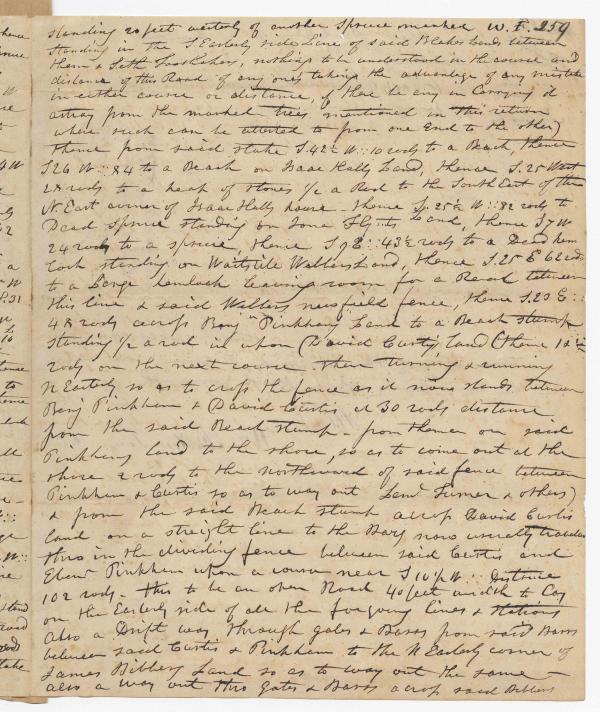 standing 20 feet westerly of another Spruce marked W. F. 259
standing in the S Easterly side Line of said Blakes Land between
them & Seth, nothing to be understood in the course and
distance of this Road of any ones taking the advantage of any mistake
in either course or distance, if there be any in Carrying it
astray from the marked trees mentioned in this return
where such can be attested to from one End to the other)
thence from said stake S 42½ W :: 10 rods to a Beach, thence
S 26 W :: 84 to a Beach on Isaac Halls Land, thence S. 25 West
28 rods to a heap of stones ½ a Rod to the South East of the
N. East corner of Isaac Halls house - thence S. 25½ W :: 82 rods to
Dead Spruce standing on Flynts Land, thence S 7 W
24 rods to a spruce, thence S 9 E :: 43½ rods to a Dead hem
lock standing on Waitstile Walkers Land, thence S. 25 E 62 rods
to a Large hemlock leaving room for a Road between
this line & said Walkers new field fence, thence S. 23 E ::
48 rods across Benj Pinkham Land to a Beach stump
standing ½ a rod in upon (David Curtis Land (thence
rods on the next course. then turning & running
N Easterly so as to cross the fence as it now stands between
Benj Pinkham & David Curtis at 30 rods distance
from the said Beach stump - from thence on said
Pinkham land to the shore, so as to come out at the
shore 2 rods to the northward of said fence between
Pinkham & Curtis so as to way out Turner & others)
& from the said Beach stump across David Curtis
Land on a streight line to the Bars now usually traveled
thro in the dividing fence between said Curtis and
Pinkham upon a course near S 10½ W :: Distance
102 rods - this to be an open Road 40 feet width to Lay
on the Easterly side of all the forgoing lines & stations
Also a Drift way through gates & Barrs from said Barrs
between said Curtis & Pinkham to the N Easterly corner of
James Bibbers Land so as to way out the same -
also a way out thro gates & Barrs across said Bibbers